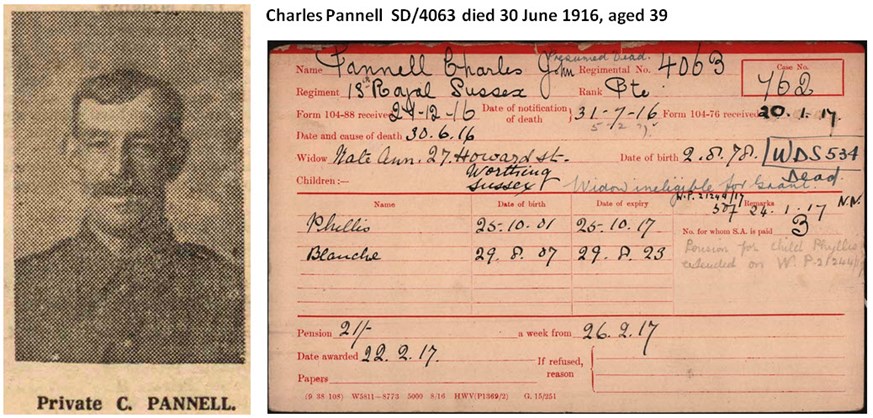 Charles Pannell SD/4063 died 30 June 1916, aged 39
Private C. PANNELL.
presumed Dead.
Name Pannell Charles John Regimental No. 4063 Case No.
Regiment 13th Royal Sussex Rank Pte. 762
Form 104-88 received 24-12-16 Date of notification of death } 31-7-16 Form 104-76 received 20.1.17.
Date and cause of death 30.6.16
Widow Kate Ann. 27. Howard St. Date of birth 2.8.78. WDS 534
Worthing Dead.
Children:— Sussex Widow ineligible for Grant.
Name Date of birth Date of expiry Remarks
24.1.17 N.N.
Phillis 25-10.01 25-10.17 No. for whom S.A. is paid 3
Blanche 29.8.07 29.8.23 Pension for child Phyllis
extended on W.P.2/244/17
Pension 21/- a week from 26.2.17
Date awarded 22.2.17. If refused,
Papers reason
(9 38 108) W5811—8773 5000 8/16 HWV(P1369/2) G. 15/251